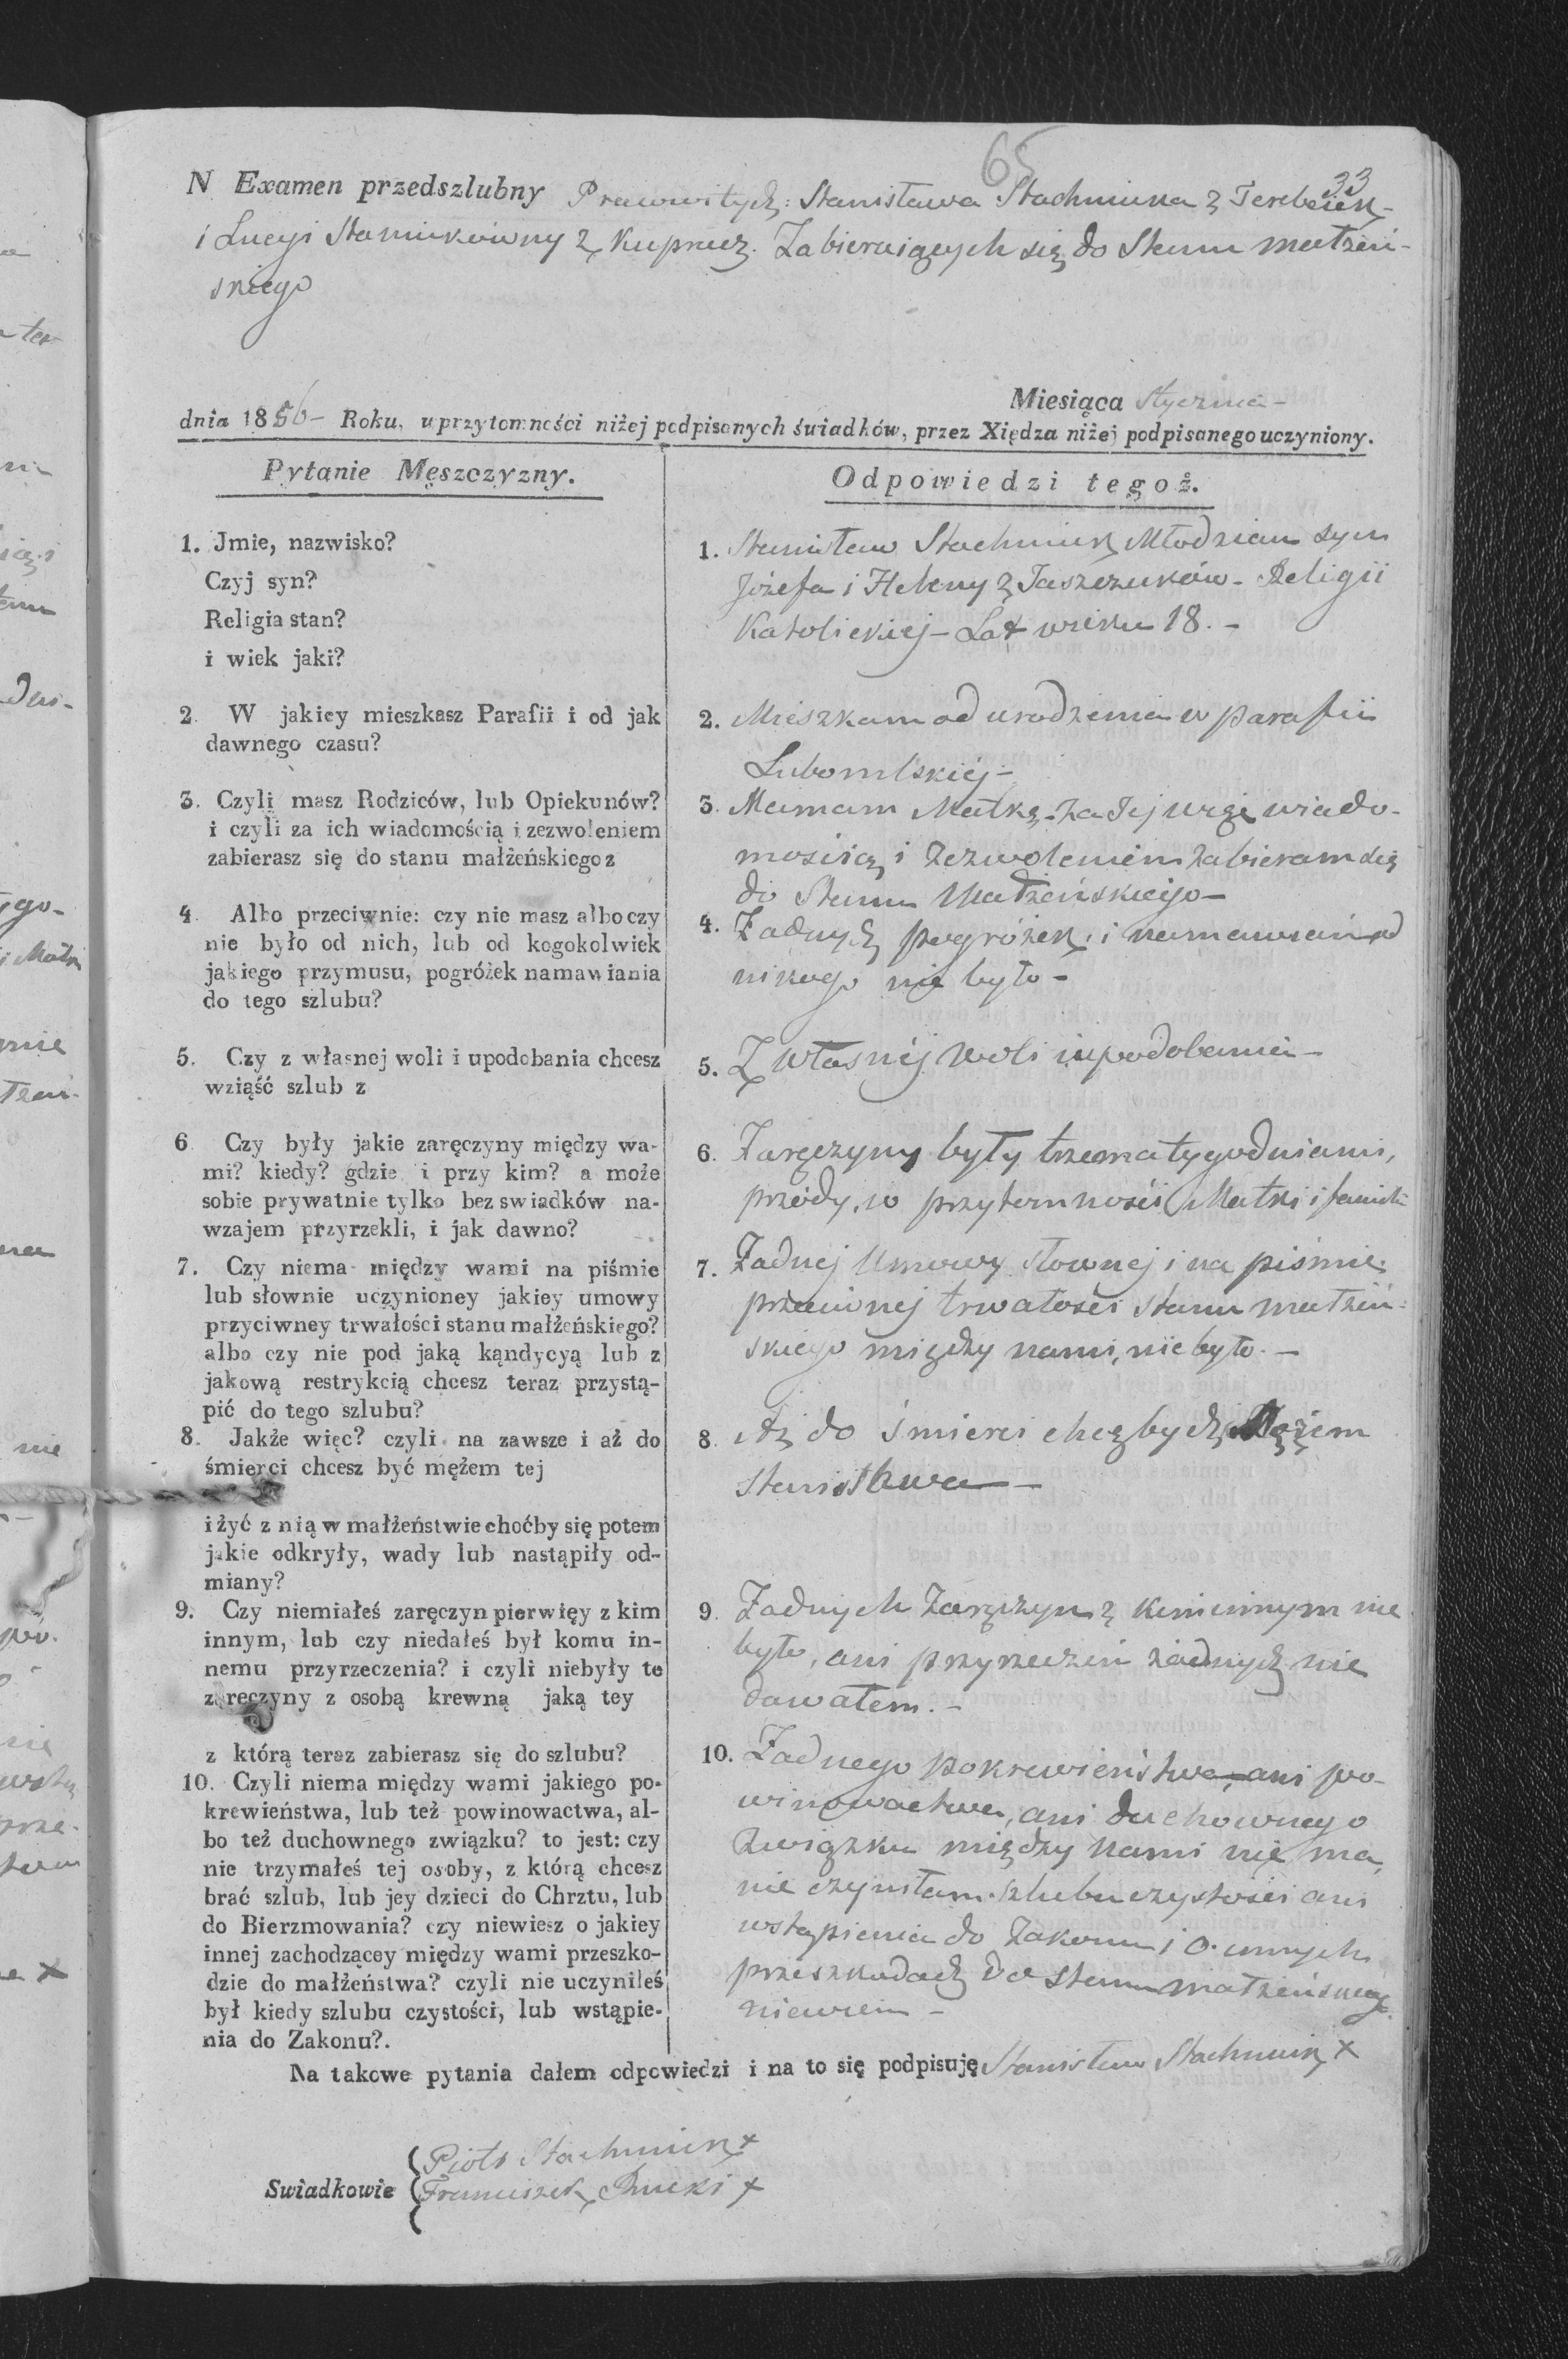 65
33
N Examen przedszlubny Prawowitych: Stanisława Stachniuka z Terebeiek-
i Lucyi Staniukówny z Kupracz. Zabieraiących się do Stanu małżeń-
skiego
Miesiąca Stycznia-
dnia 1856- Roku, uprzytomności niżej podpisanych świadków, przez Xiędza niżej podpisanego uczyniony.
Pytanie Męszczyzny.
1. Jmie, nazwisko?
Czyj syn?
Religia stan?
i wiek jaki?
2. W jakiey mieszkasz Parafii i od jak
dawnego czasu?
3. Czyli masz Rodziców, lub Opiekunów?
i czyli za ich wiadomością i zezwoleniem
zabierasz się do stanu małżeńskiego z
4. Albo przeciwnie: czy nie masz albo czy
nie było od nich, lub od kogokolwiek
jakiego przymusu, pogróżek namawiania
do tego szlubu?
5. Czy z własnej woli i upodobania chcesz
wziąść szlub z
6 Czy były jakie zaręczyny między wa-
mi? kiedy? gdzie i przy kim? a może
sobie prywatnie tylko bez swiadków na-
wzajem przyrzekli, i jak dawno?
7. Czy niema między wami na piśmie
lub słownie uczynioney jakiey umowy
przyciwney trwałości stanu małżeńskiego?
albo czy nie pod jaką kąndycyą lub z
jakową restrykcią chcesz teraz przystą-
pić do tego szlubu?
8. Jakże więc? czyli na zawsze i aż do
śmierci chcesz być mężem tej
i żyć z nią w małżeństwie choćby się potem
jakie odkryły, wady lub nastąpiły od-
miany?
9. Czy niemiałeś zaręczyn pierwięy z kim
innym, lub czy niedałeś był komu in-
nemu przyrzeczenia? i czyli niebyły te
zaręczyny z osobą krewną jaką tey
z którą teraz zabierasz się do szlubu?
10. Czyli niema między wami jakiego po-
krewieństwa, lub też powinowactwa, al-
bo też duchownego związku? to jest: czy
nie trzymałeś tej osoby, z którą chcesz
brać szlub, lub jey dzieci do Chrztu, lub
do Bierzmowania? czy niewiesz o jakiey
innej zachodzącey między wami przeszko-
dzie do małżeństwa? czyli nie uczyniłeś
był kiedy szlubu czystości, lub wstąpie-
nia do Zakonu?.
Odpowiedzi tegoż.
1. Stanisław Stachniuk Młodzian syn
Józefa i Heleny z Jaszczuków- Religii
Katolickiej- Lat wieku 18.-
2. Mieszkam od urodzenia w parafii
Lubomlskiej-
3. Mamam Matkę- za Jej wiado-
mością i zezwoleniem zabieram się
do Stanu Małżeńskiego-
4. Żadnych pogróżek, i namawiań od
nikogo nie było-
5. Z własnej woli i upodobania-
6. Zaręczyny były trzema tygodniami,
przódy, w przytomności Matki i famili
7. Żadnej Umowy słownej i na piśmie
przeciwnej trwałości stanu małżeń-
skiego między nami, nie było.-
8. Aż do śmierci chcę bydź Mężem
Stanisława-
9. Żadnych Zaręczyn z kiminnym nie
było, ani przyrzeczeń żadnych nie
dawałem.-
10. Żadnego pokrewieństwa, ani po-
winowactwa, ani duchownego
Związku między nami nie ma,
nie czyniłam szlubu czystości ani
wstąpienia do Zakonu i o innych
przeszkodach do stanu małżeńskiego
niewiem-
Na takowe pytania dałem odpowiedzi i na to się podpisuję Stanisław Stachniuk x
Swiadkowie
Piotr Stachniuk x
Franciszek Rucki x